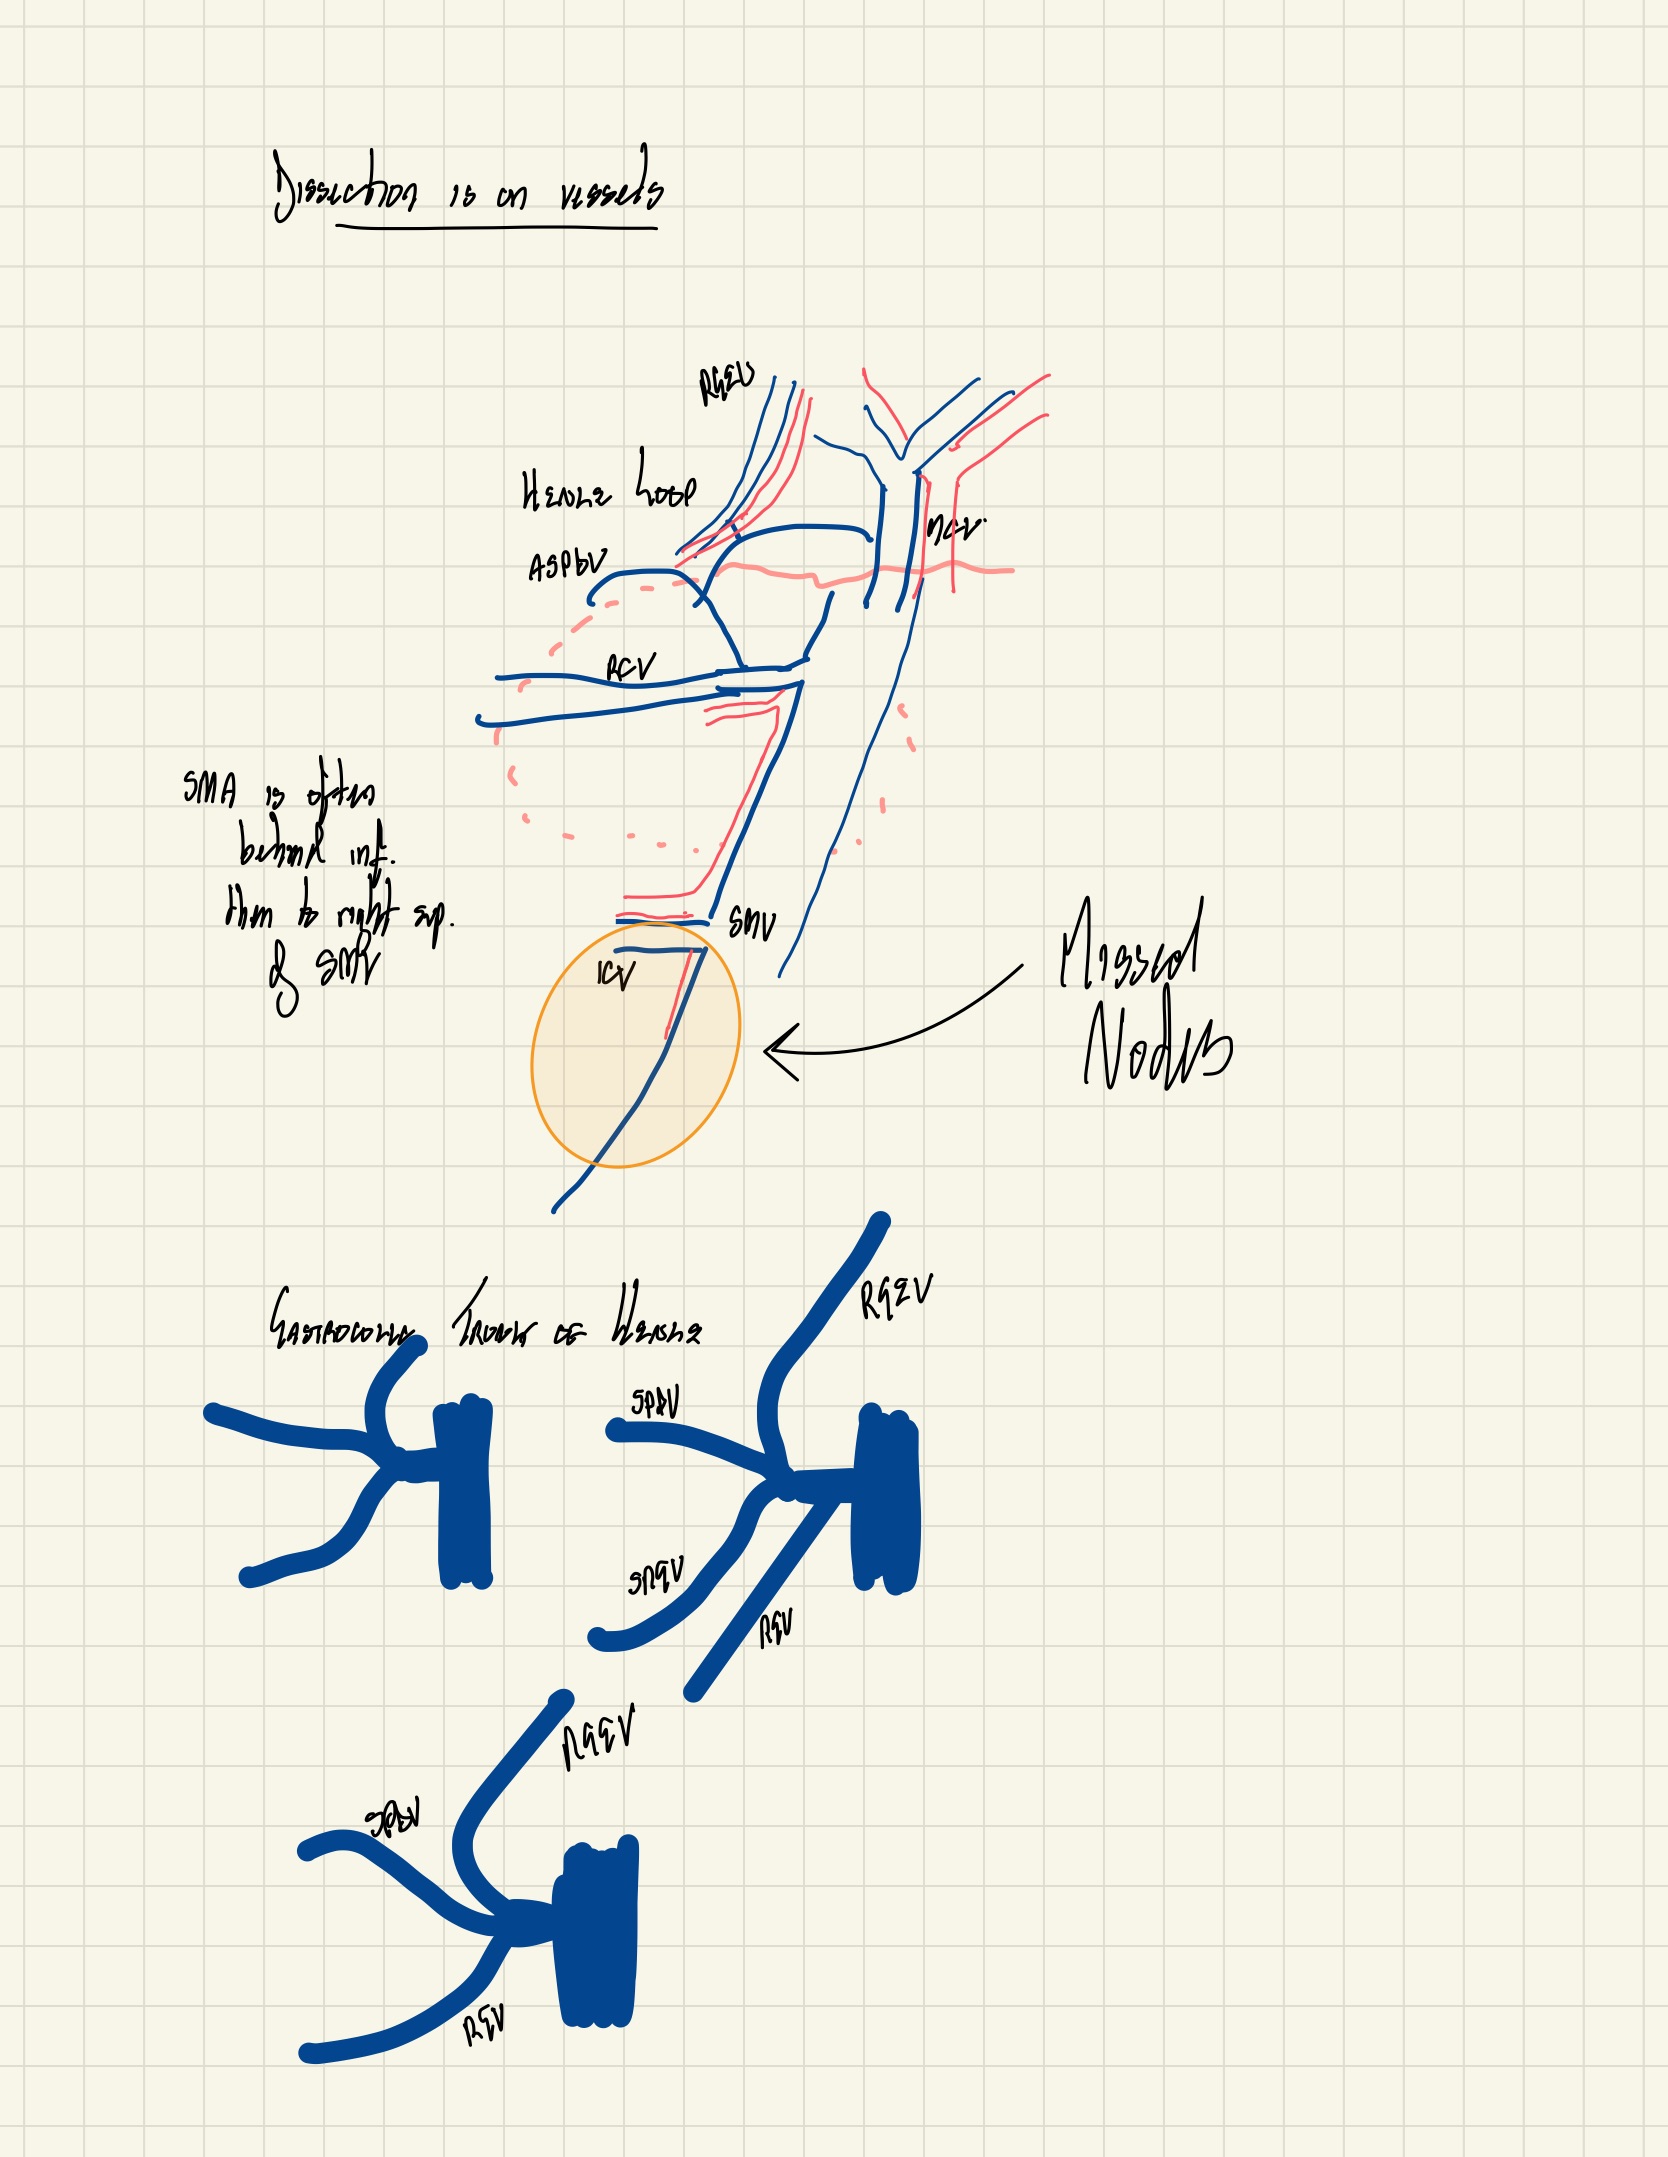 Dissection is on vessels
RGEV
Henle Loop
MCV
ASPDV
RCV
SMA is often
behind inf.
then to right sup.
of SMV
SMV
ICV
Missed
Nodes
Gastrocolic Trunk of Henle
RGEV
SPDV
RGEV
SPDV